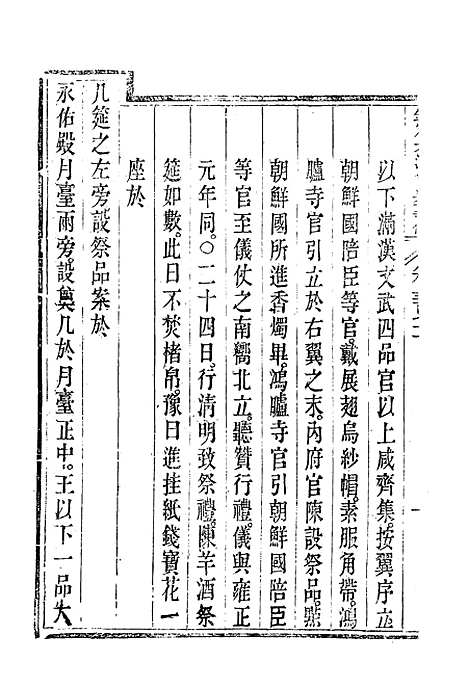 以下滿漢文武四品官以上咸齊集。按翼序立
朝鮮國陪臣等官。戴展翅烏紗帽。素服角帶。鴻
臚寺官引立於右翼之末。內府官陳設祭品。照
朝鮮國所進香燭畢。鴻臚寺官引朝鮮國陪臣
等官至儀仗之南嚮北立。聽贊行禮。儀與雍正
元年同。○二十四日。行清明致祭禮。陳羊酒祭
筵如數。此日不焚楮帛。豫日進挂紙錢寶花一
座於
几筵之左旁。設祭品案於
永佑殿月臺兩旁。設奠几於月臺正中。王以下一品大